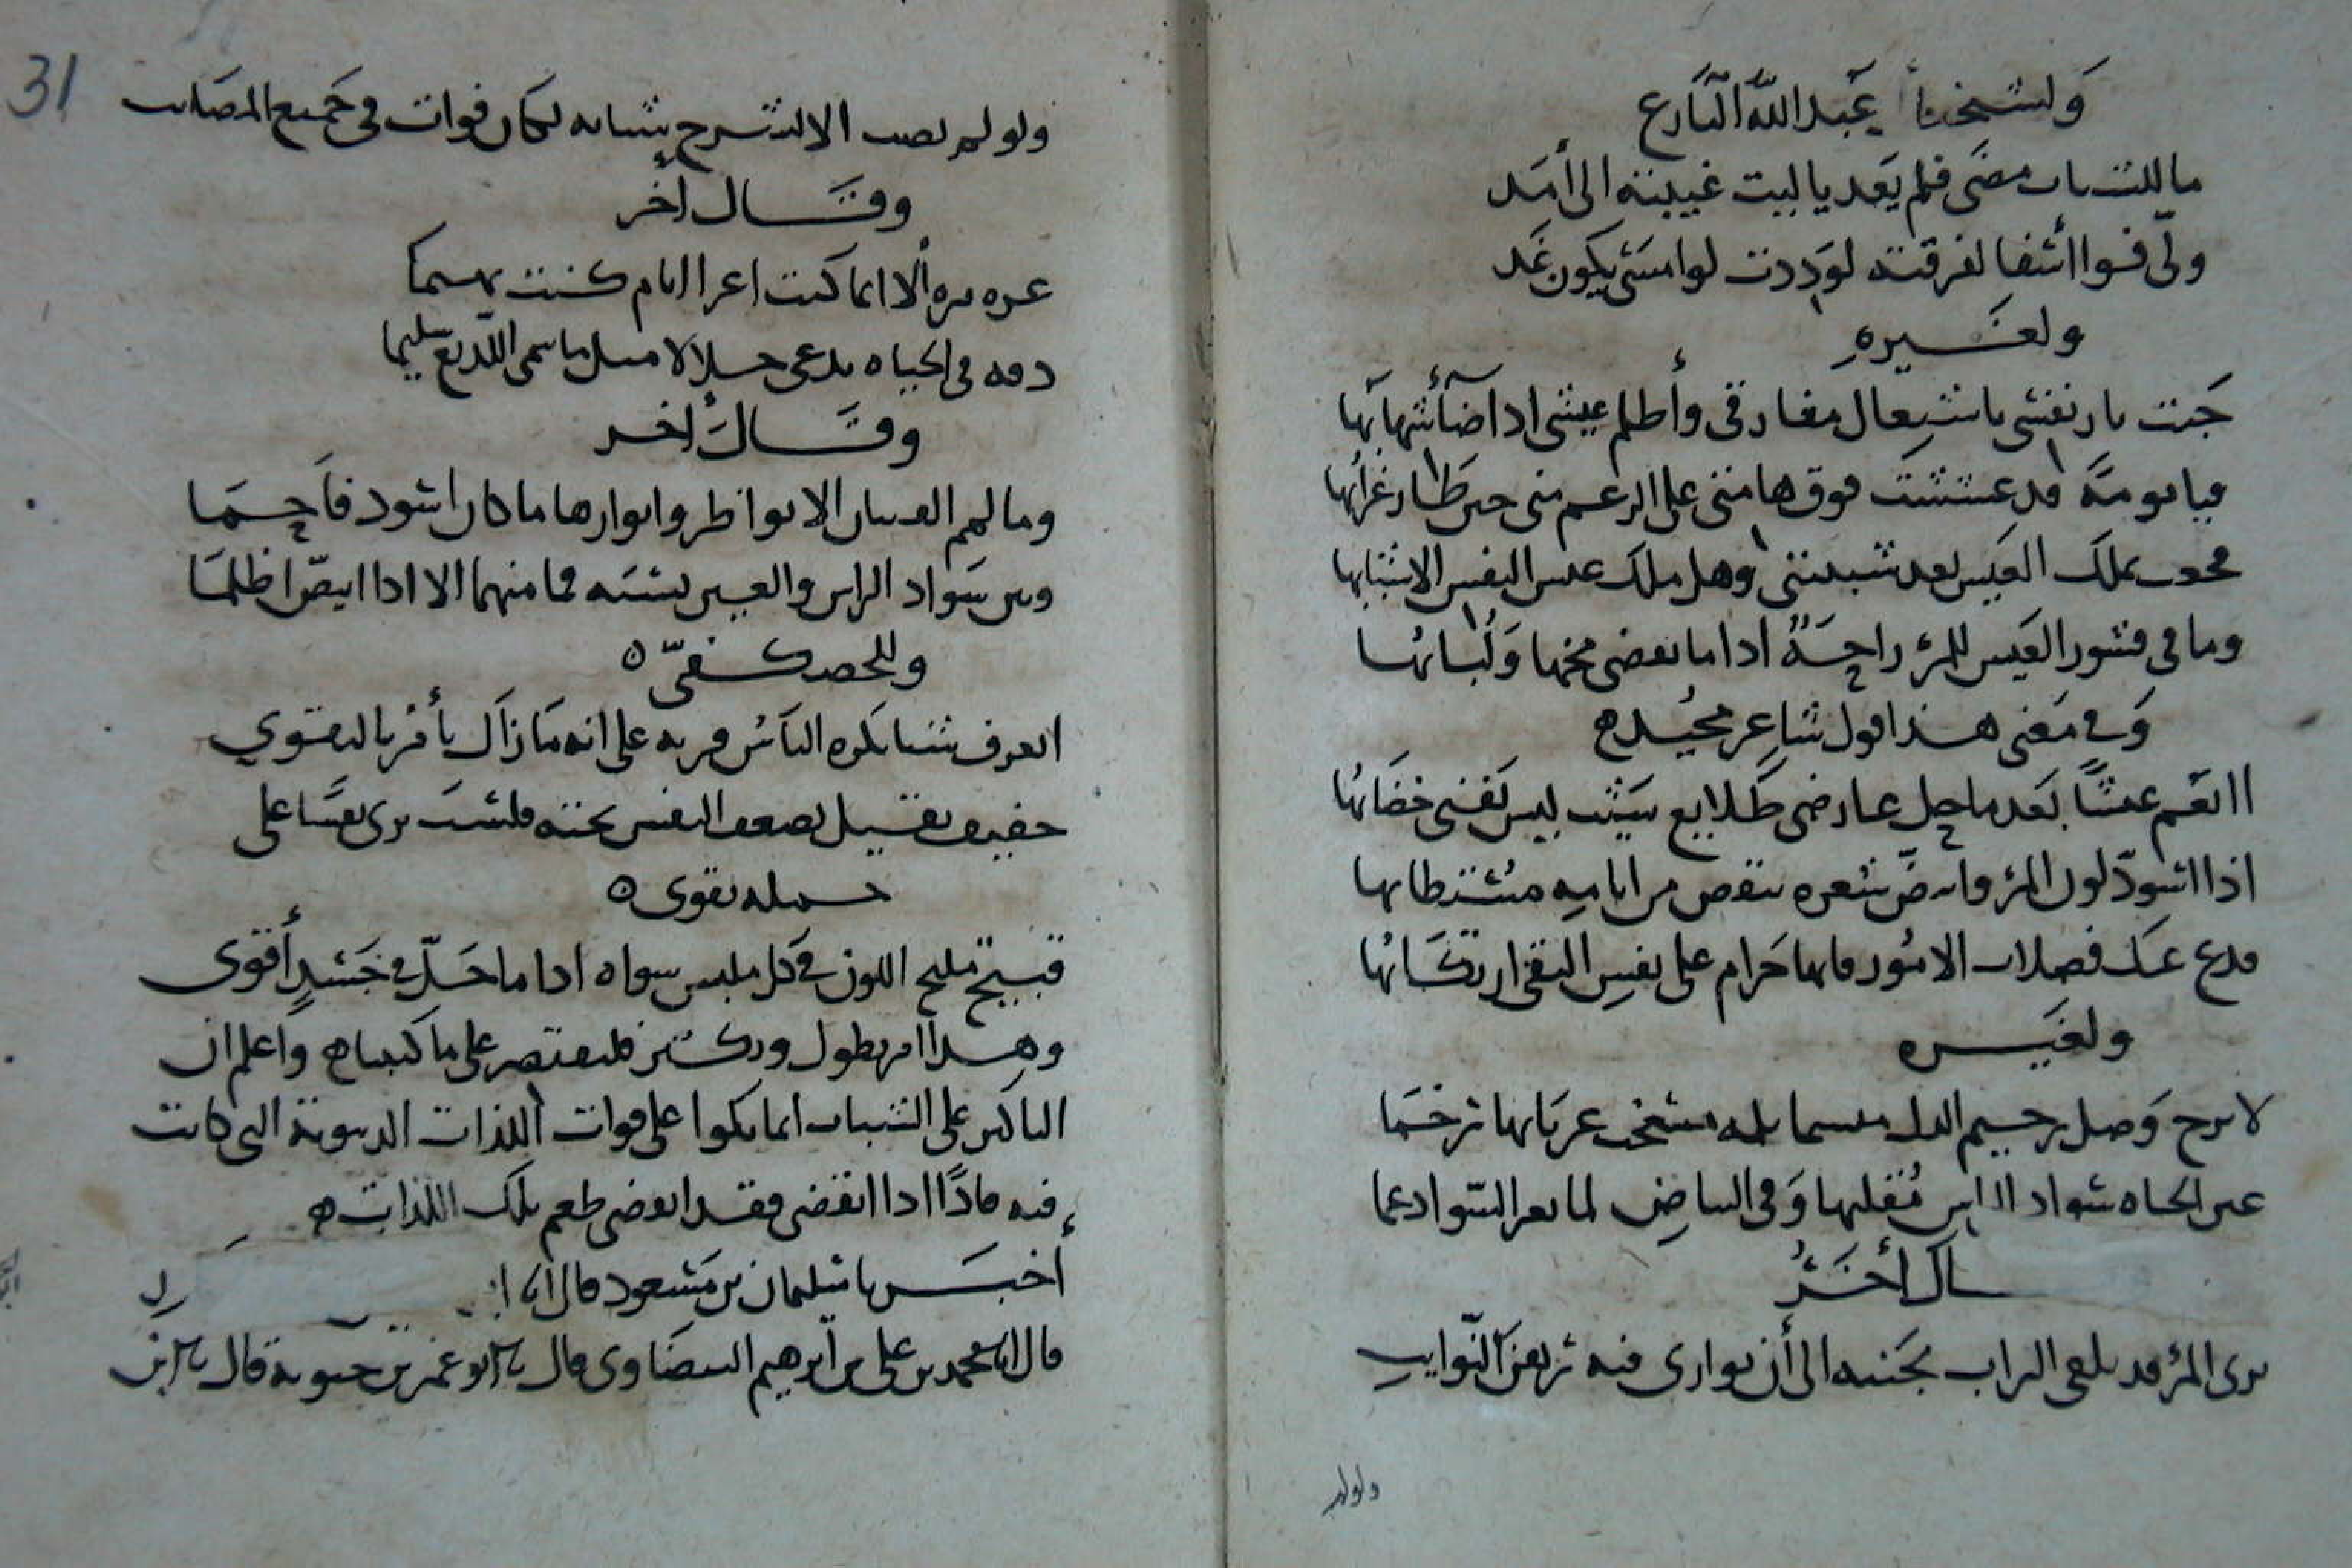 ولشيخنا عبد الله البارع
ما للشباب مضى فلم يعد يا ليت غيبته الى أمد
ولّى فوا اسفا لفرقته لوددت لو امسى يكون غد
ولغيره
خبت نار نفسي باشتعال مفارقي وأظلم عيشي اذا ضاء شهابها
فيا بومة قد عششت فوق هامتي على الرغم مني حين طار غرابها
تملك العيش بعد وهل تلك عيس النفس الا شبابها
وما في قشور العيش للمرء راحة اذا ما تقضى مخها ولبابها
وفي معنى هذا قول شاعر مجيد ه
اانعم عيشا بعد ما حل عارضي طلايع شيب ليس يغني خضابها
اذا اسودّ لون المرء وابيضّ شعره تنقص من ايامه مستطابها
فدع عنك فضلات الامور فانها حرام على نفس التقي ارتكابها
ولغيره
لا ترج وصل رخيم الدل
عين الحياه سواد الراس مقلتها وفي البياض لما بعد السواد عما
ـال آخر
ترى المرء قد يلقى التراب بجنبه الى أن يوارى فيه رهن النوايب
ولولم
31
ولو لم يصب الا لشرخ شبابه لكان قوات في جميع المصايب
وقال آخر
غره مره ألا انما كنت اغرا ايام كنت بهيما
دقه في الحياه تدعى جلالا مثل ما سمي اللديغ سليما
وقال آخر
وما لهم العينان الا نواظر وانوارها ما كان اسود فاحما
وبين سواد الراس والعين نسبه فما منهما الا اذا ابيضّ اظلما
وللحصكفيّ ه
اتعرف شيا يكره الناس قربه على انه ما زال يأمر بالتقوي
خفيف ثقيل يضعف النفس بحته فلست ترى نفسا على
حمله تقوى ه
قبيح مليح اللون في كل ملبس سواه اذا ما حلّ في جسد أقوى
وهذا امر يطول وركثر فليقتصر على ما كتبناه واعلم ان
الباكين على الشباب انما بكوا على فوات اللذات الدنيوية التي كانت
فيه فاذا اذا انقضى فقد انقضى طعم تلك اللذات ه
أخبرنا سليمان بن مسعود قال انا
قال انا محمد بن علي بن ابرهيم البيضاوي قال نا ابو عمر بن حيويه قال نا ابن